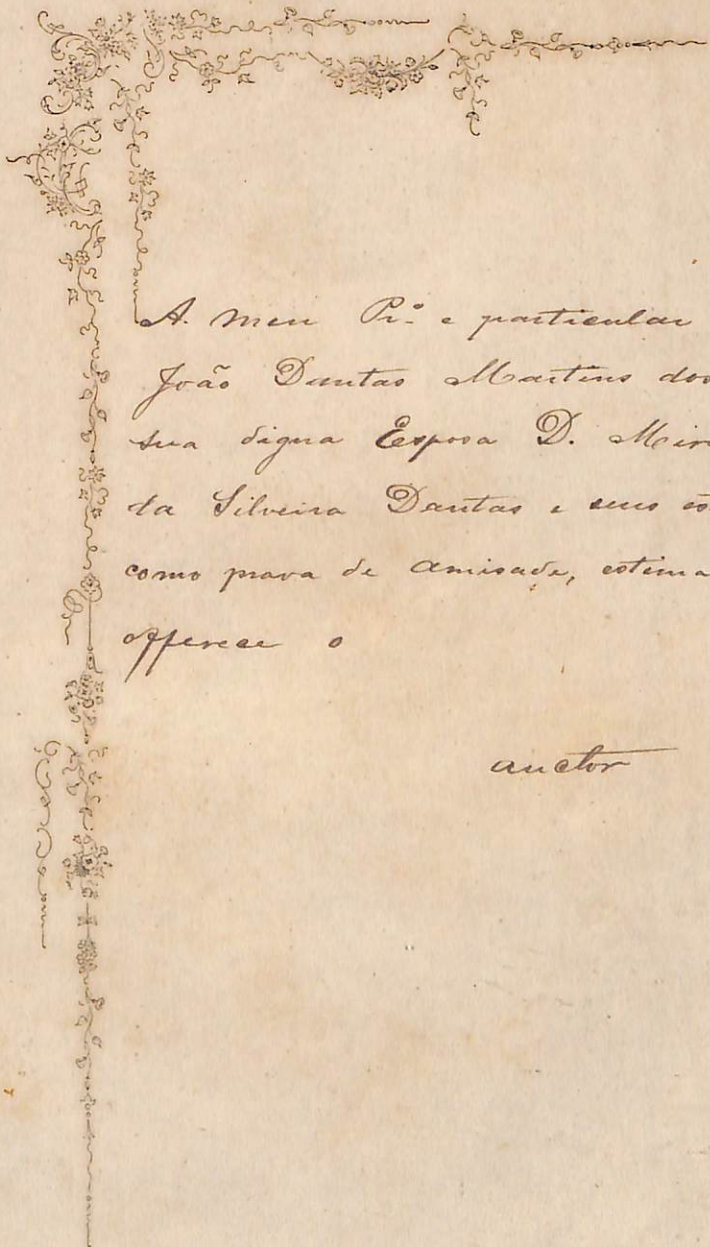 A meu Pr.º e particular
João Dantas Martins dos
sua digna Esposa D.
da Silveira Dantas e seus
como prova de amisade, estima
offerece o
auctor